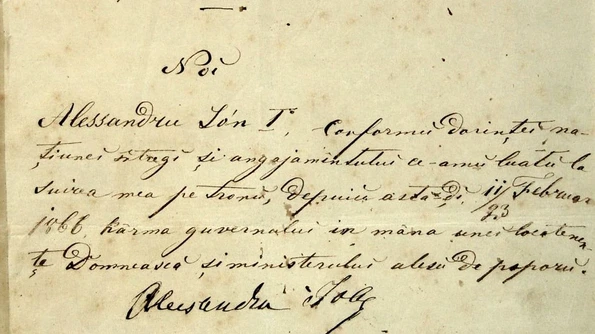 Noi
Alessandru Ión I, conformu dorinței na-
țiunei întregi și angajamentului ce-amu luatu la
suirea mea pe tronu, depuiu astă-di 11/23 Februar
1866 kârma guvernului in mâna unei locotenen-
țe Domnească și ministerului alesu de poporu.
Alessandru Ioan